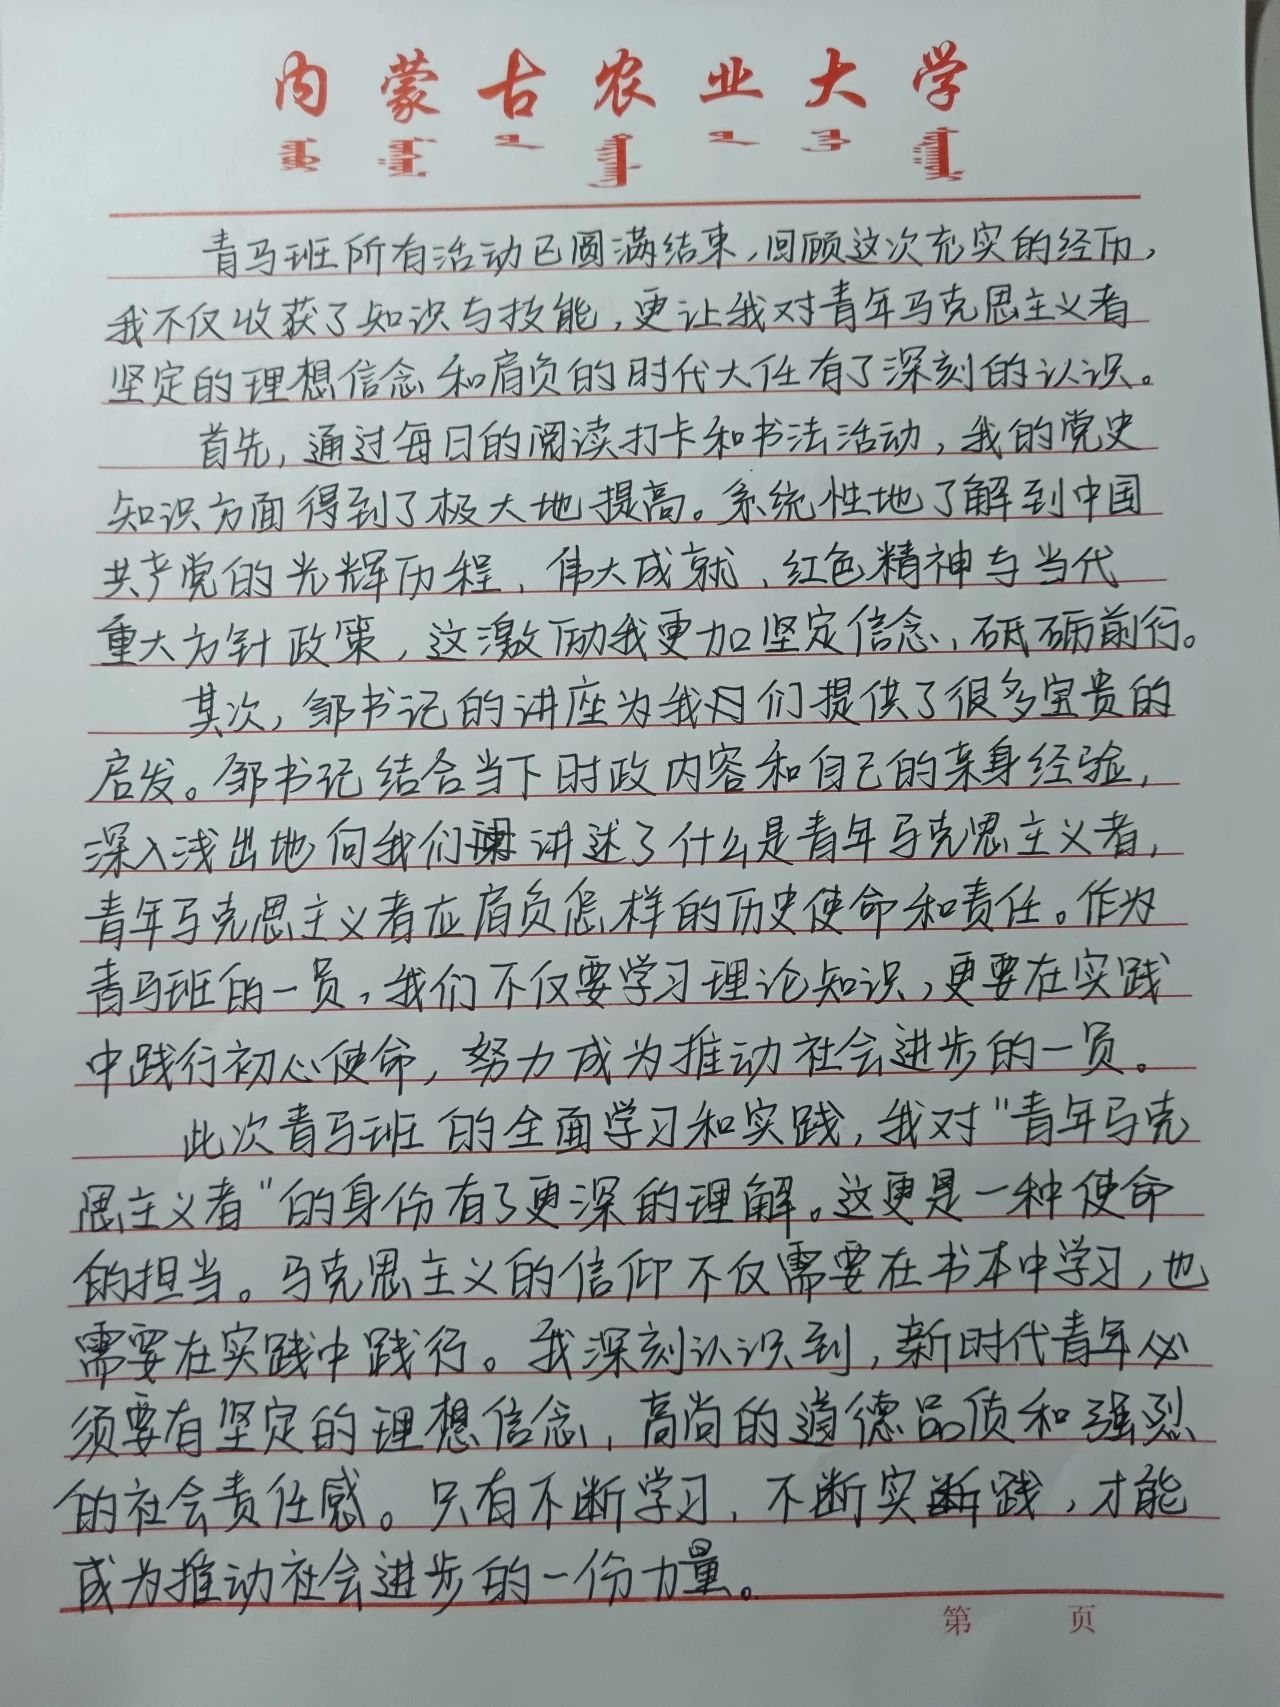 内蒙古农业大学
青马班所有活动已圆满结束，回顾这次充实的经历，
我不仅收获了知识与技能，更让我对青年马克思主义者
坚定的理想信念和肩负的时代大任有了深刻的认识。
首先，通过每日的阅读打卡和书法活动，我的党史
知识方面得到了极大地提高。系统性地了解到中国
共产党的光辉历程、伟大成就、红色精神与当代
重大方针政策，这激励我更加坚定信念、砥砺前行。
其次，邹书记的讲座为我们提供了很多宝贵的
启发。邹书记结合当下时政内容和自己的亲身经验，
深入浅出地向我们讲述了什么是青年马克思主义者，
青年马克思主义者应肩负怎样的历史使命和责任。作为
青马班的一员，我们不仅要学习理论知识，更要在实践
中践行初心使命，努力成为推动社会进步的一员。
此次青马班的全面学习和实践，我对"青年马克
思主义者"的身份有了更深的理解。这更是一种使命
的担当。马克思主义的信仰不仅需要在书本中学习，也
需要在实践中践行。我深刻认识到，新时代青年必
须要有坚定的理想信念、高尚的道德品质和强烈
的社会责任感。只有不断学习、不断实践，才能
成为推动社会进步的一份力量。
第 页